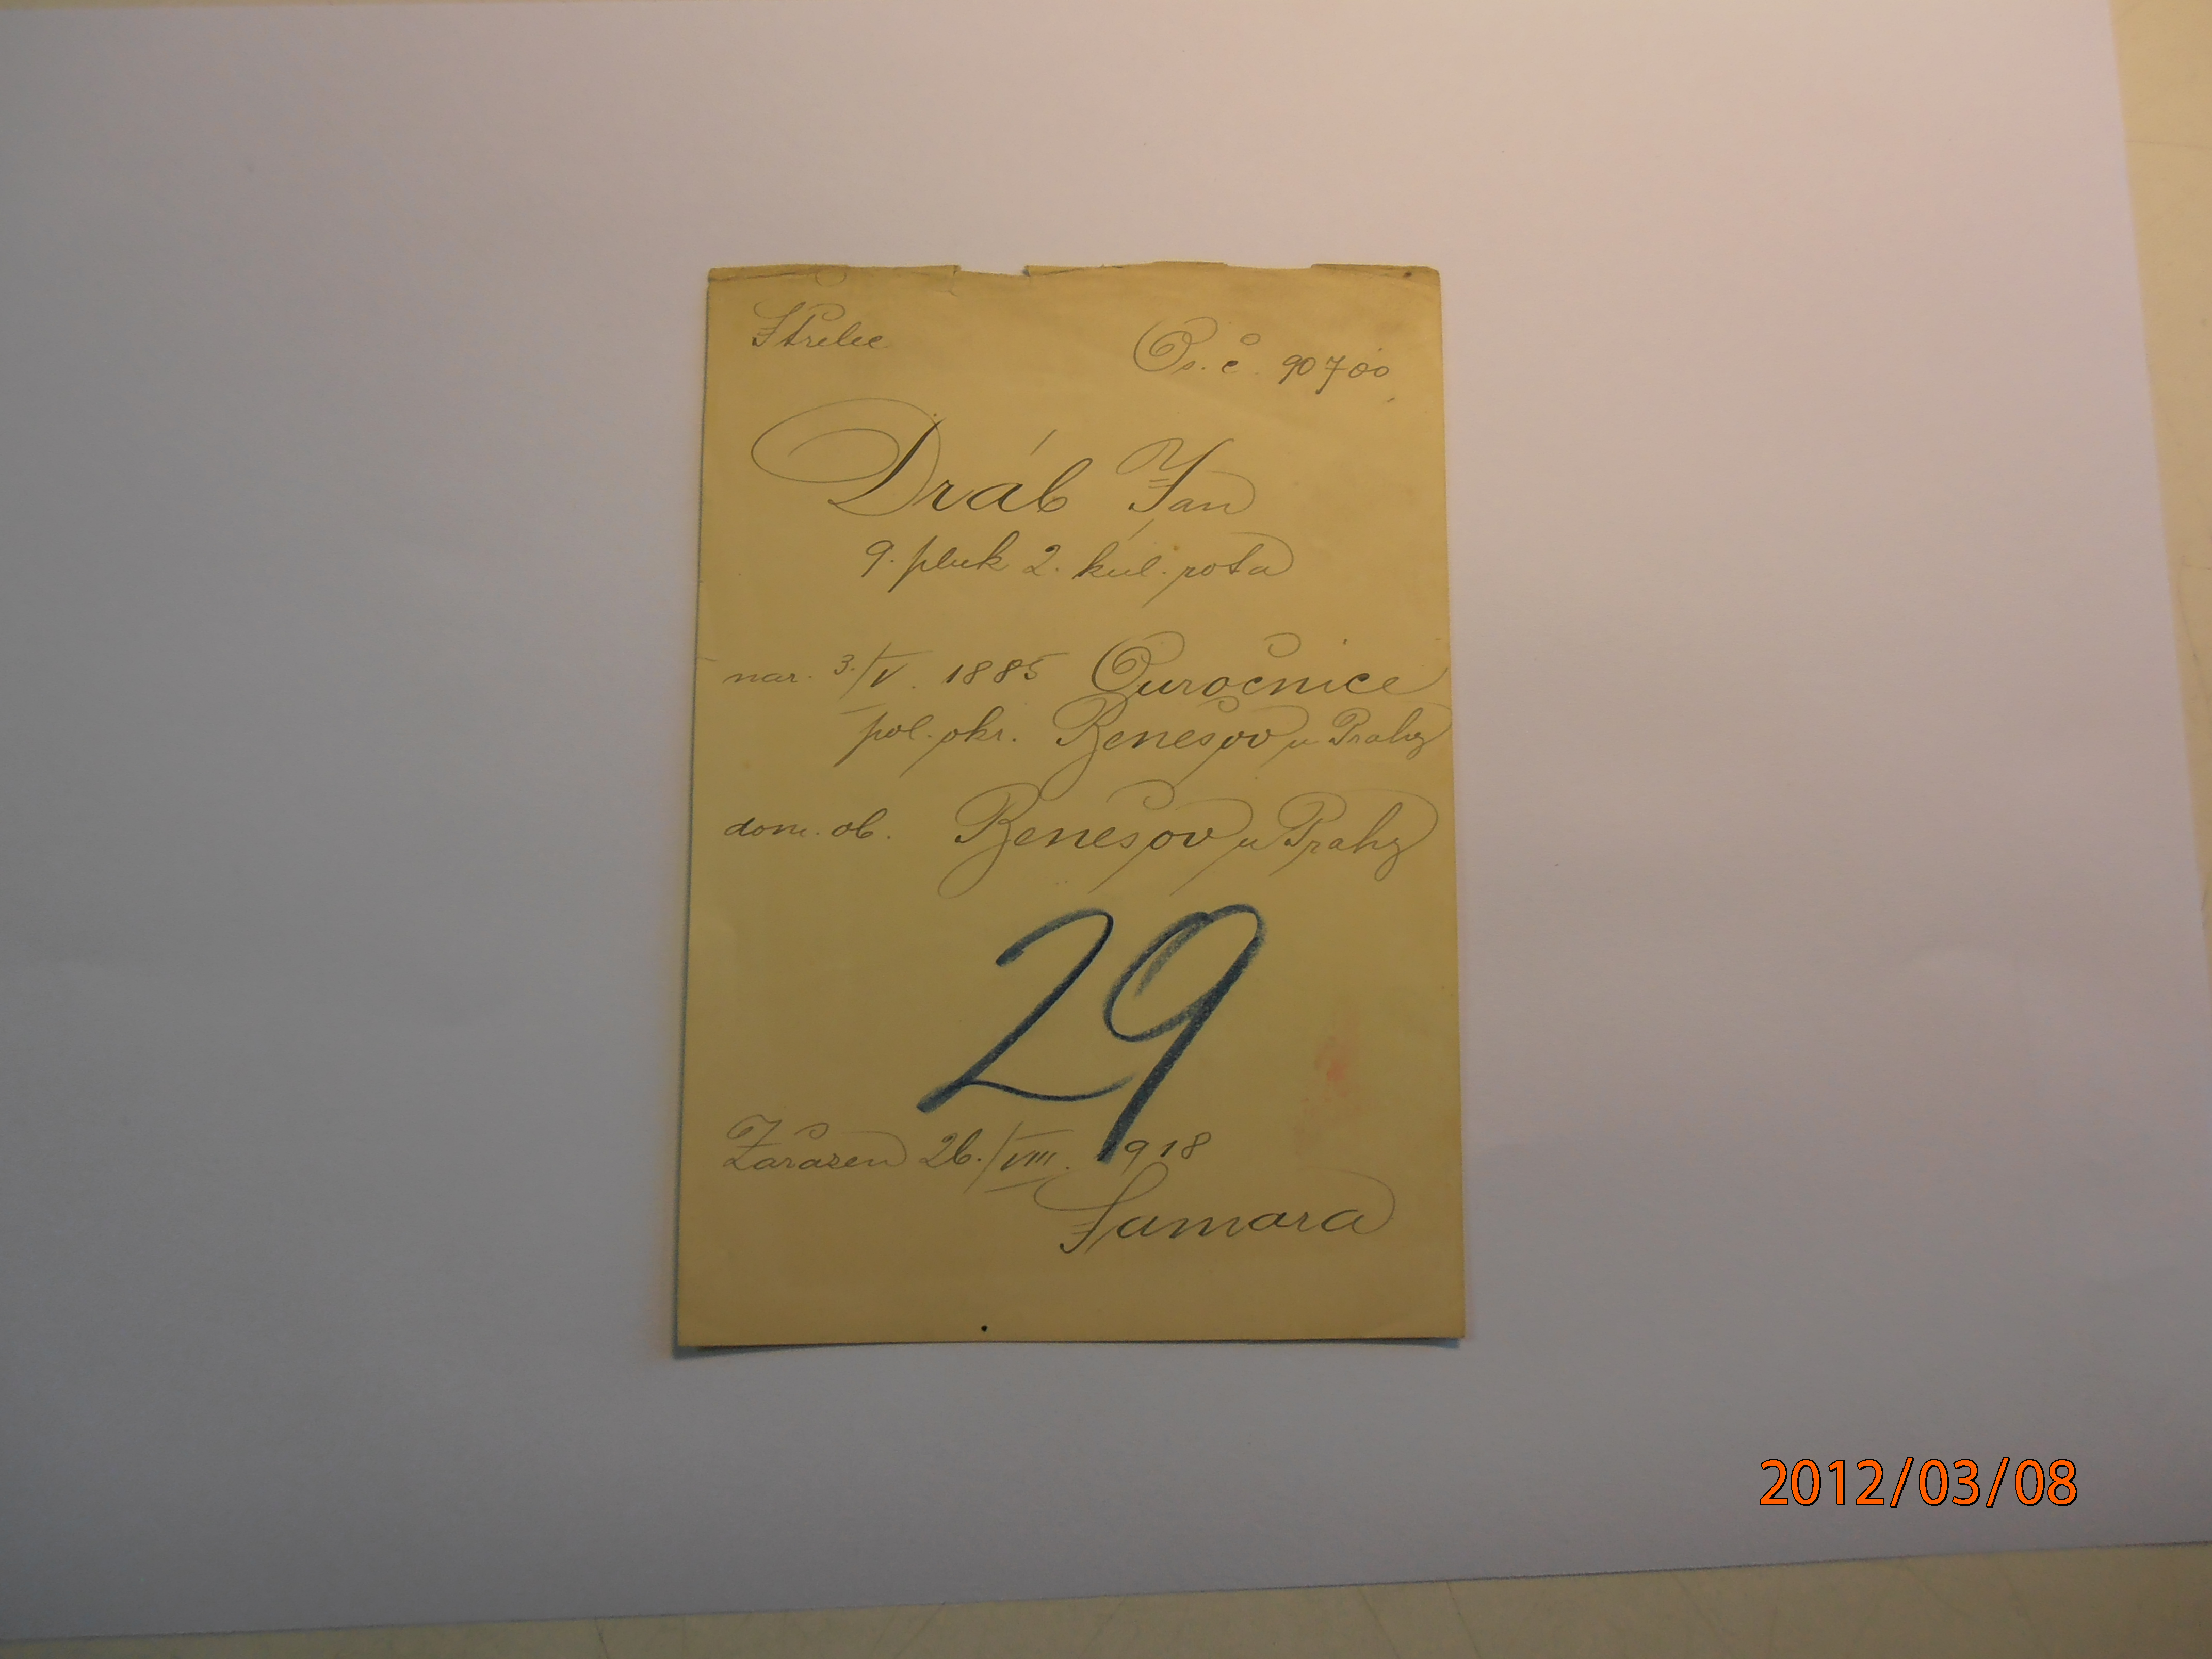 Střelec
Os. č. 90700
Dráb Jan
9. pluk 2. kul. rota
nar. 3./V. 1885 Ouročnice
pol. okr. Benešov u Prahy
dom. ob. Benešov u Prahy
29
Zařazen 26./VIII. 1918
Samara
2012/03/08